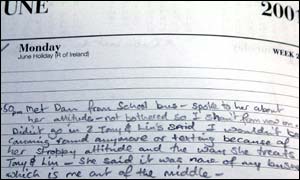 UNE
200
Monday
June Holiday (R of Ireland)
WEEK 2
50 Met Dan from School bus - spoke to her about
her attitude - not bothered so I don't from now on
Didn't go in 2 Tony & Lin's said I wouldn't be
coming round anymore or texting because of
her stroppy attitude and the way she treats
Tony & Lin - she said it was none of my business
which is me out of the middle -